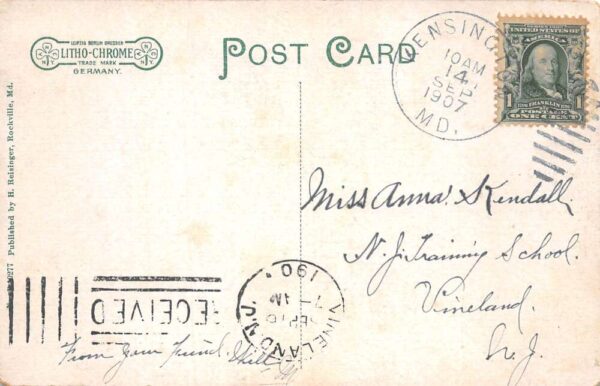 LEIPZIG BERLIN DRESDEN
LITHO-CHROME
TRADE MARK
GERMANY.
POST CARD
KENSING
10 AM
14
SEP
1907
MD.
UNITED STATES OF
AMERICA
1
FRANKLIN
1
POSTAGE
ONE CENT
Miss Anna Kendall,
N. J. Training School.
Vineland.
N. J.
Published by H. Reisinger, Rockville, Md.
RECEIVED
VINELAND N.J.
SEP
7 - AM
190
From your friend.